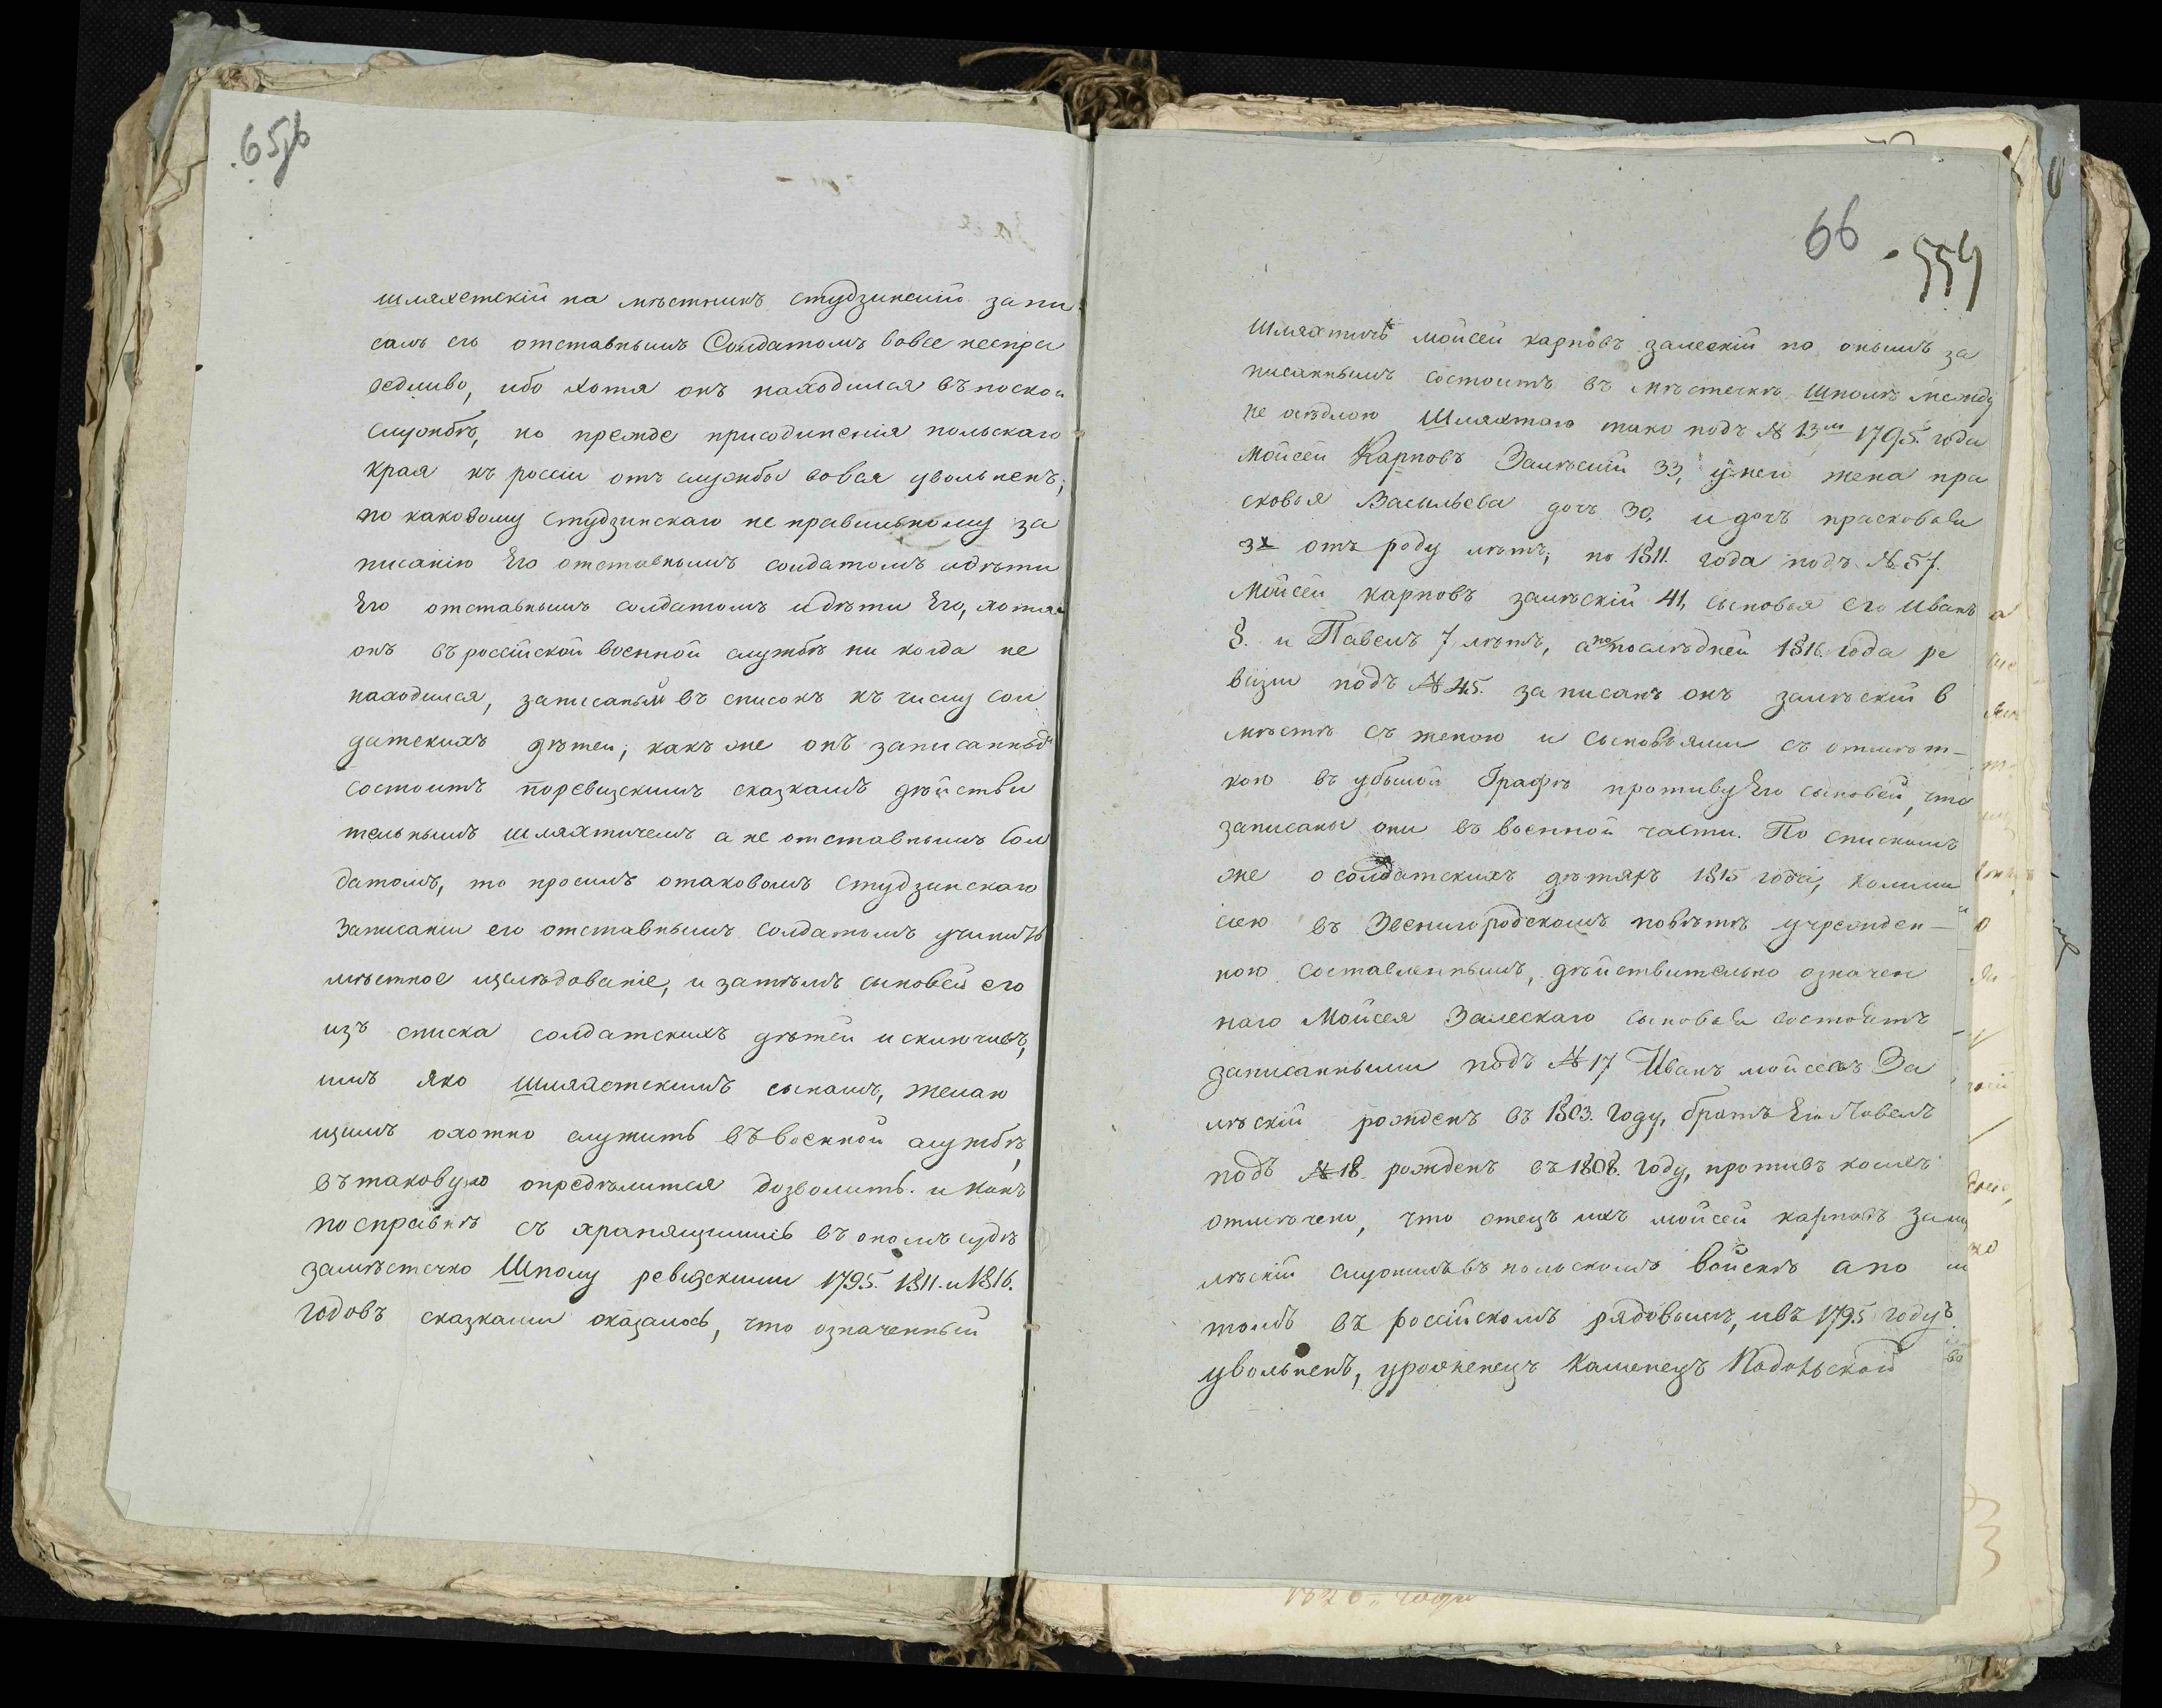 65об
шляхетскій на мѣстникъ студзинскій запи
салъ его отставнымъ Солдатомъ вовсе неспра
ведливо, ибо хотя онъ находился въ полской
службѣ, но прежде присодиненія польскаго
края къ россіи отъ службы вовся увольненъ;
по каковому Студзинскаго не правильному за
писанію Его отставнымъ солдатомъ идѣти
Его отставнымъ солдатомъ идѣти Его, хотя
онъ въ россійской военной службѣ ни когда не
находился, записаны въ списокъ къ числу сол
датскихъ дѣтей; какъ же онъ записаннымъ
состоитъ поревизскимъ сказкамъ дѣйстви
тельнымъ шляхтичемъ а не отставнымъ Сол
датомъ, то просилъ отаковомъ Студзинскаго
записаніи его отставнымъ солдатомъ учинить
мѣстное изслѣдованіе, и затѣмъ сыновей его
изъ списка солдатскихъ дѣтей исключивъ,
имъ яко шляхетскимъ сынамъ, желаю
щимъ охотно служить въ военной службѣ,
въ таковую опредѣлится дозволить. и какъ
по справкѣ съ хранящимись въ ономъ судѣ
замѣстечко Шполу ревизскими 1795. 1811. и 1816.
годовъ сказками оказалось, что означенный
66
559
шляхтичъ мойсей карповъ залескій по онымъ за
писаннымъ состоитъ въ мѣстечкѣ Шполѣ между
не осѣдлою Шляхтою тако подъ № 13м 1795. года
Мойсей Карповъ Залѣскій 33, унего жена пра
сковья Васильева дочь 30, идочь прасковья
3х отъ роду лѣтъ; по 1811. года подъ № 57.
Мойсей карповъ залѣскій 41, сыновья его Иванъ
8. и Павелъ 7 лѣтъ, а по послѣдней 1816. года ре
визіи подъ № 45. записанъ онъ залѣскій в
мѣстѣ съ женою и сыновьями съ отмѣт-
кою въ убылой Графѣ противу Его сыновей, что
записаны они въ военной части. По спискамъ
же о солдатскихъ дѣтяхъ 1815 года, комми
сіею въ Звенигородскомъ повѣтѣ учрежден-
ною составленнымъ, дѣйствительно означен
наго Мойсея Залескаго сыновья состоятъ
записанными подъ № 17 Иванъ мойсеевъ За
лѣскій рожденъ въ 1803. году, братъ Его Павелъ
подъ № 18. рожденъ въ 1808. году, противъ коихъ
отмѣчено, что отецъ ихъ мойсей карповъ За
лѣскій служилъ въ польскомъ войскѣ а по
томъ въ россійскомъ рядовымъ, ивъ 1795 году
увольненъ, уроженецъ Каменецъ Подольской
1826 года